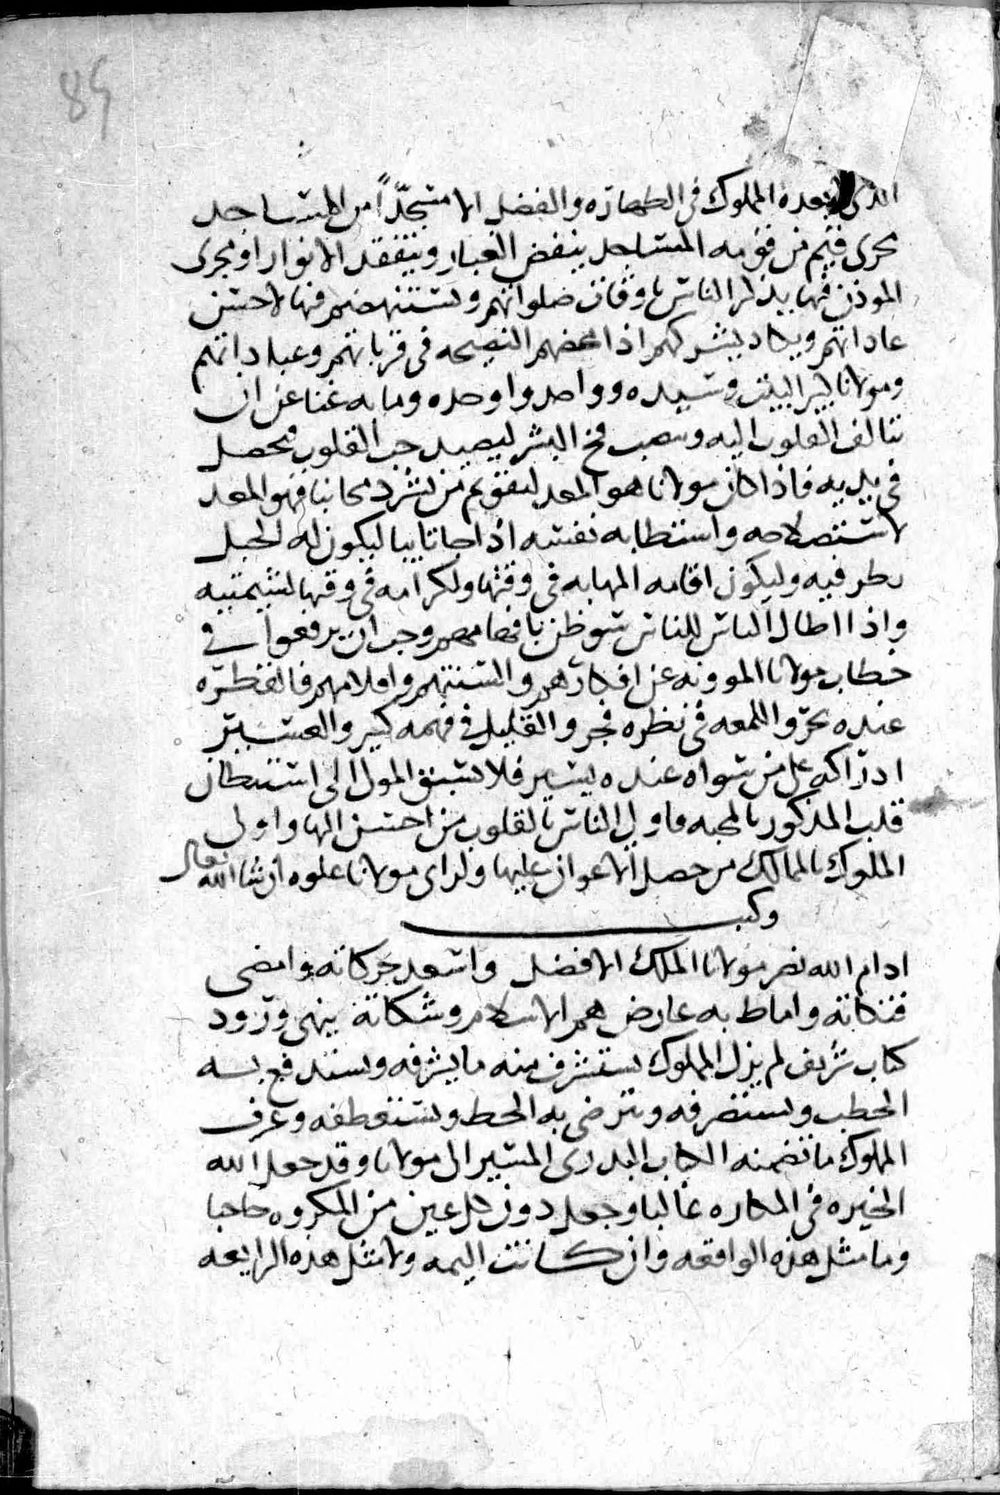 89
الذي يعده المملوك في الطهاره والفضل الا مسجدا من المساجد
يجري فيم من قومه المساجد ينفض الغبار ويتفقد الانوار او مجرى
الموذن فيها يذكر الناس باوقات صلواتهم ويستنهضهم فيها لاحسن
عاداتهم ويكاد يشركهم اذا محضهم النصيحه في قرباتهم وعباداتهم
ومولانا كبير البيت وسيده وواحده واوحده وما به غنا عن ان
تتالف القلوب اليه وينصب فخ البشر ليصيد حب القلوب فيحصل
في يديه فاذا كان مولانا هو المعد لتقويم من شرد مجانبا فهو المعد
لاستصلاحه واستطابه نفسه اذا جا تايبا ليكون له الحبل
بطرفيه وليكون اقامه المهابه في وقتها والكرامه في وقتها لشيمتيه
واذا اطال الناس للناس سو ظن بافهامهم وجب ان يرفعوا في
خطاب مولانا الموونه عن افكارهم والسنتهم واقلامهم فالقطره
عنده بحر واللمعه في نظره فجر والقليل في فهمه كثير والعسير
ادراكه على من سواه عنده يسير فلا يسبق المولى الى استبطان
قلب المذكور بالمحبه فاولى الناس بالقلوب من احسن اليها واولى
الملوك بالممالك من حصل الاعوان عليها ولراي مولانا علوه ان شا الله تعالى
وكتب
ادام الله نصر مولانا الملك الافضل واسعد حركاته وامضى
فتكاته واماط به عارض هم الاسلام وشكاته ينهي ورود
كتاب شريف لم يزل المملوك يستشرف منه ما يشرفه ويستدفع به
الخطب ويستصرفه ويترضى به الحظ ويستعطفه وعرف
المملوك ما تضمنه الكتاب البدري المسير الى مولانا وقد جعل الله
الخيره في المكاره غالبا وجعل دون كل عين من المكروه حاجبا
وما مثل هذه الواقعه وان كانت اليمه ولا مثل هذه الرايعه